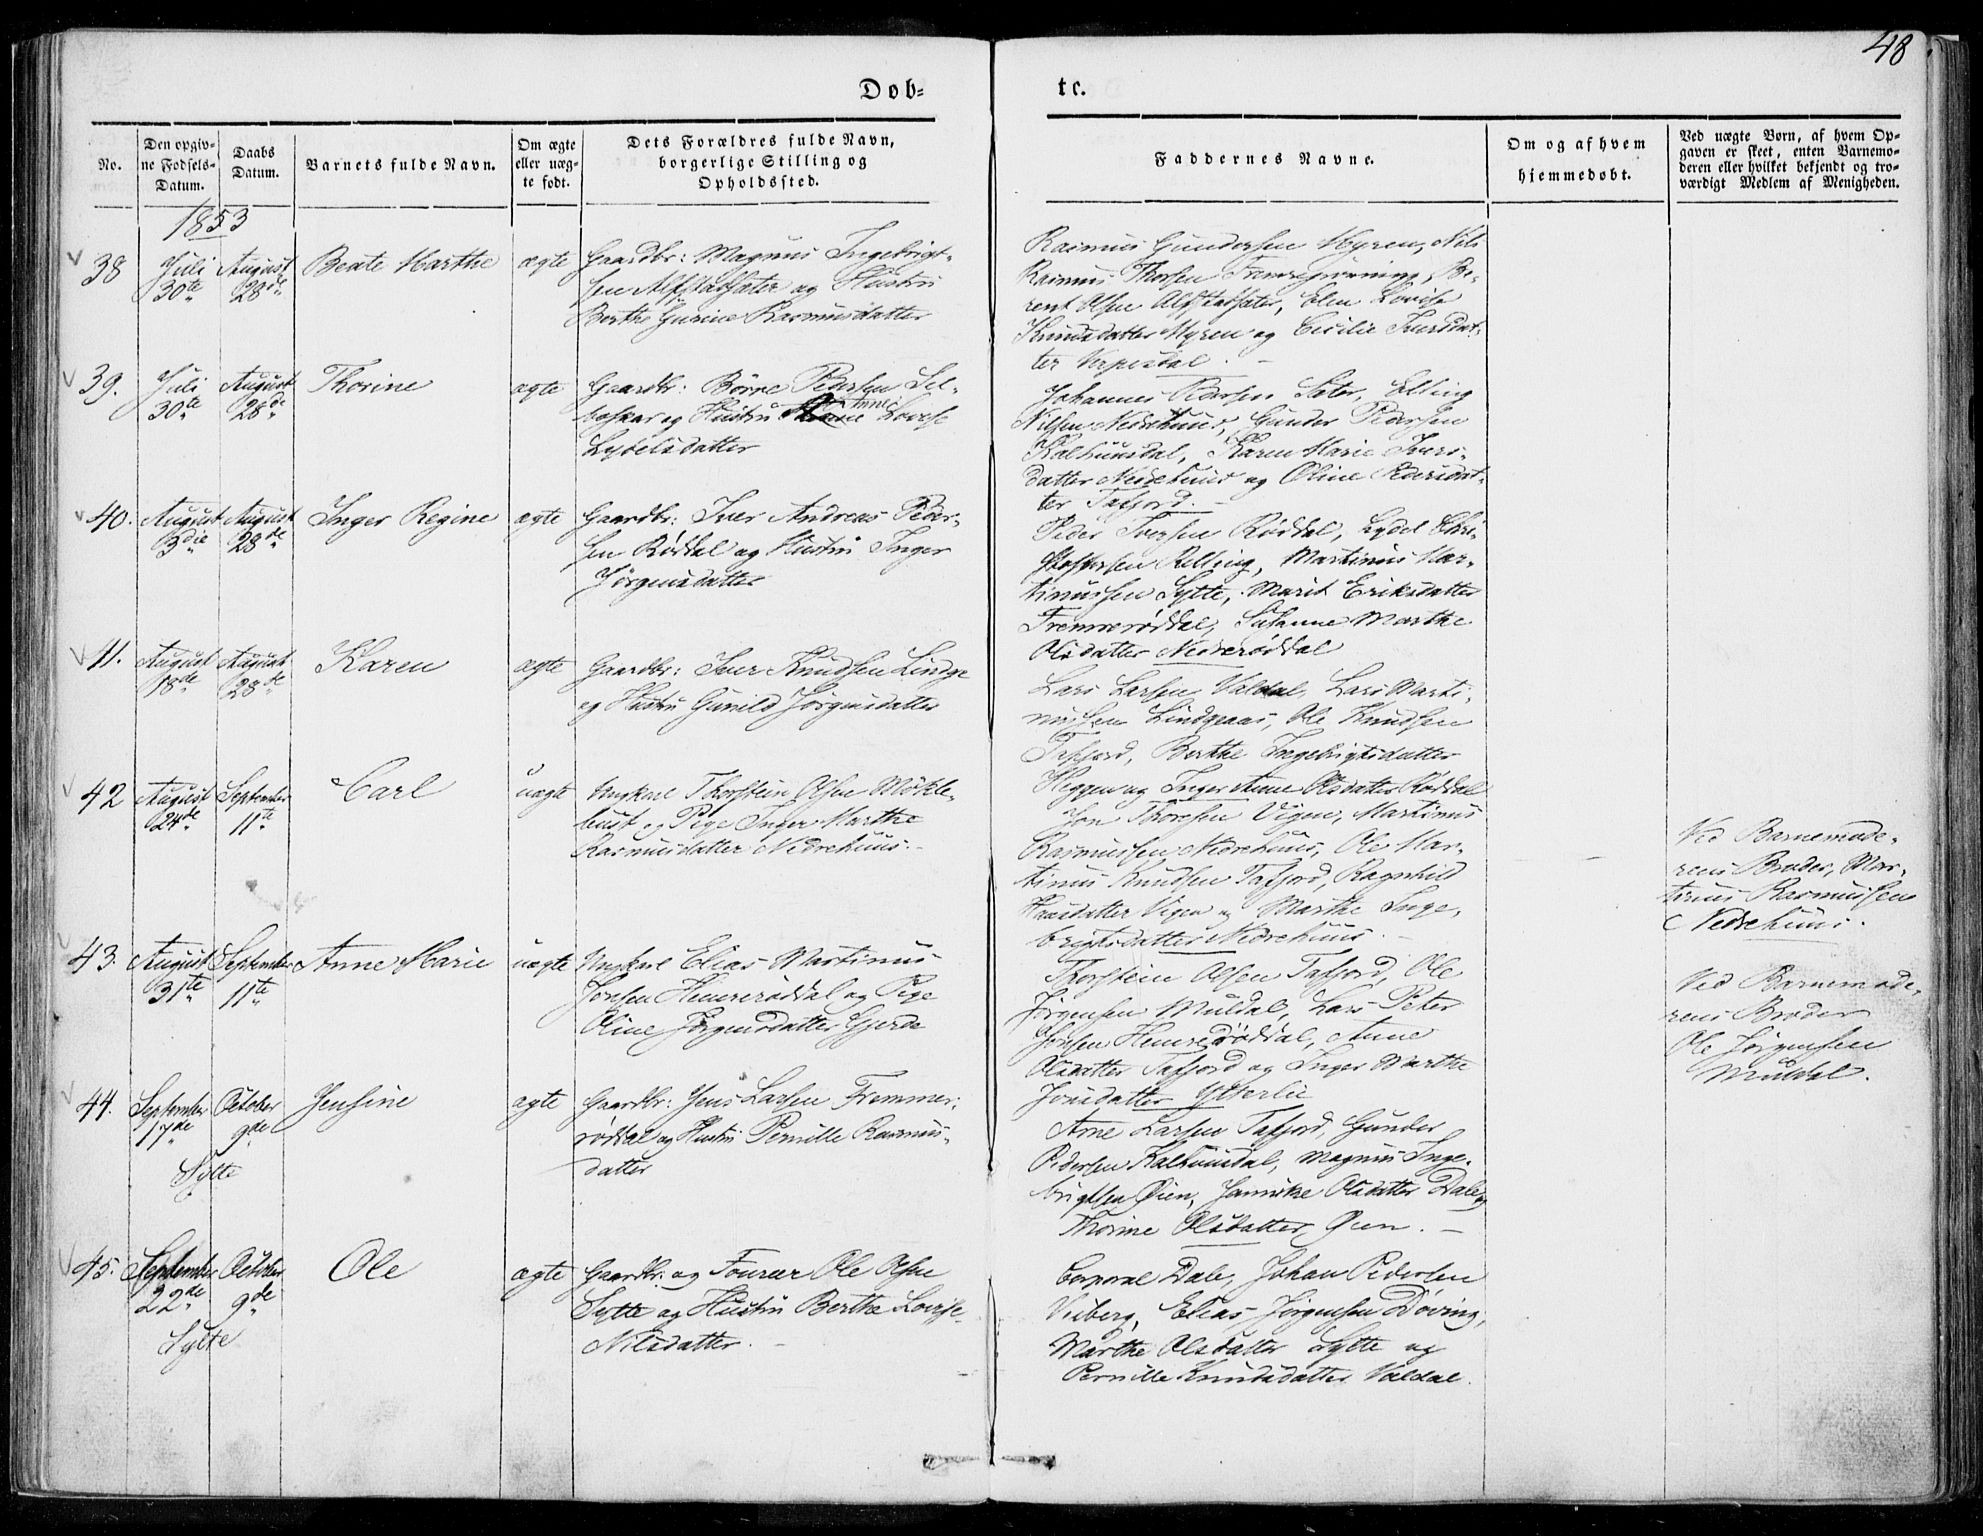 48
Døb-
te.
No.
Den opgiv-
ne Fødsels-
Datum.
Daabs
Datum.
Barnets fulde Navn.
Om ægte
eller uæg-
te født.
Dets Forældres fulde Navn,
borgerlige Stilling og
Opholdssted.
Faddernes Navne.
Om og af hvem
hjemmedøbt.
Ved uægte Børn, af hvem Op-
gaven er skeet, enten Barnemo-
deren eller hvilket bekjendt og tro-
værdigt Medlem af Menigheden.
1853
38
Juli
30te
August
28de
Beate Marthe
ægte
Gaardbr: Magnus Ingebrigt-
sen Alfstadsæter og Hustru
Berthe Gurine Rasmusdatter
Rasmus Gundersen Myren, Nils
Rasmus Thorsen Fremre, Be-
rent Olsen Alfstadsæter, Elen Lovise
Knudsdatter Myren og Cicilie Iversdat-
ter
39.
Juli
30te
August
28de
Thorine
ægte
Gaardbr: Børre Pedersen Sel-
boskar og Hustru Anne Lovise
Lydelsdatter
Johannes Pedersen Sæter, Elling
Nilsen Nedrehuus, Gunder Pedersen
Kalhuusdal, Karen Marie Ivers-
datter Nedrehuus og Oline Pedersdat-
ter Tafjord.
40.
August
3die
August
28de
Inger Regine
ægte
Gaardbr: Iver Andreas Peder-
sen Røddal og Hustru Inger
Jørgensdatter
Peder Iversen Røddal, Lydel Chri-
stophersen Relling, Martinus Mar-
tinussen Sylte, Marit Eriksdatter
Fremrerøddal, Susanne Marthe
Olsdatter Nedrerøddal
41.
August
18de
August
28de
Karen
ægte
Gaardbr: Iver Knudsen Lindge
og Hustru Gunild Jørgensdatter
Lars Larsen Valdal, Lars Marti-
nussen Lindgeaas, Ole Knudsen
Tafjord, Berthe Ingebrigtsdatter
Heggen og Inger Anne Olsdatter Røddal
42
August
24de
September
11te
Carl
uægte
Ungkarl Thorstein Olsen Møkle-
bust og Pige Inger Marthe
Rasmusdatter Nedrehuus.
Jon Thoresen Vigen, Martinus
Rasmussen Nedrehuus, Ole Mar-
tinus Knudsen Tafjord, Ragnhild
Hansdatter Vigen og Marthe Inge-
brigtsdatter Nedrehuus.
Ved Barnemode-
rens Broder, Mar-
tinus Rasmussen
Nedrehuus.
43.
August
31te
September
11te
Anne Marie
uægte
Ungkarl Elias Martinus
Jonsen Heimrerøddal og Pige
Oline Jørgensdatter Gjerde
Thorstein Olsen Tafjord, Ole
Jørgensen Muldal, Lars Peter
Jonsen Heimrerøddal, Anne
Olsdatter Tafjord og Inger Marthe
Jonsdatter Ytterlie
Ved Barnemode-
rens Broder
Ole Jørgensen
Muldal.
44.
September
17de
October
9de
Sylte
Jensine
ægte
Gaardbr: Jens Larsen Fremmer-
røddal og Hustru Pernille Rasmus-
datter
Arne Larsen Tafjord, Gunder
Pedersen Kalhuusdal, Magnus Inge-
brigtsen Øien, Jannike Olsdatter Dale og
Thorine Olsdatter Øien.
45.
September
22de
October
9de
Sylte
Ole
ægte
Gaardbr: og Fourer Ole Olsen
Sylte og Hustru Berthe Lovise
Nilsdatter.
Corporal Dale, Johan Pedersen
Viberg, Elias Jørgensen Døving,
Marthe Olsdatter Sylte og
Pernille Knudsdatter Valdal.